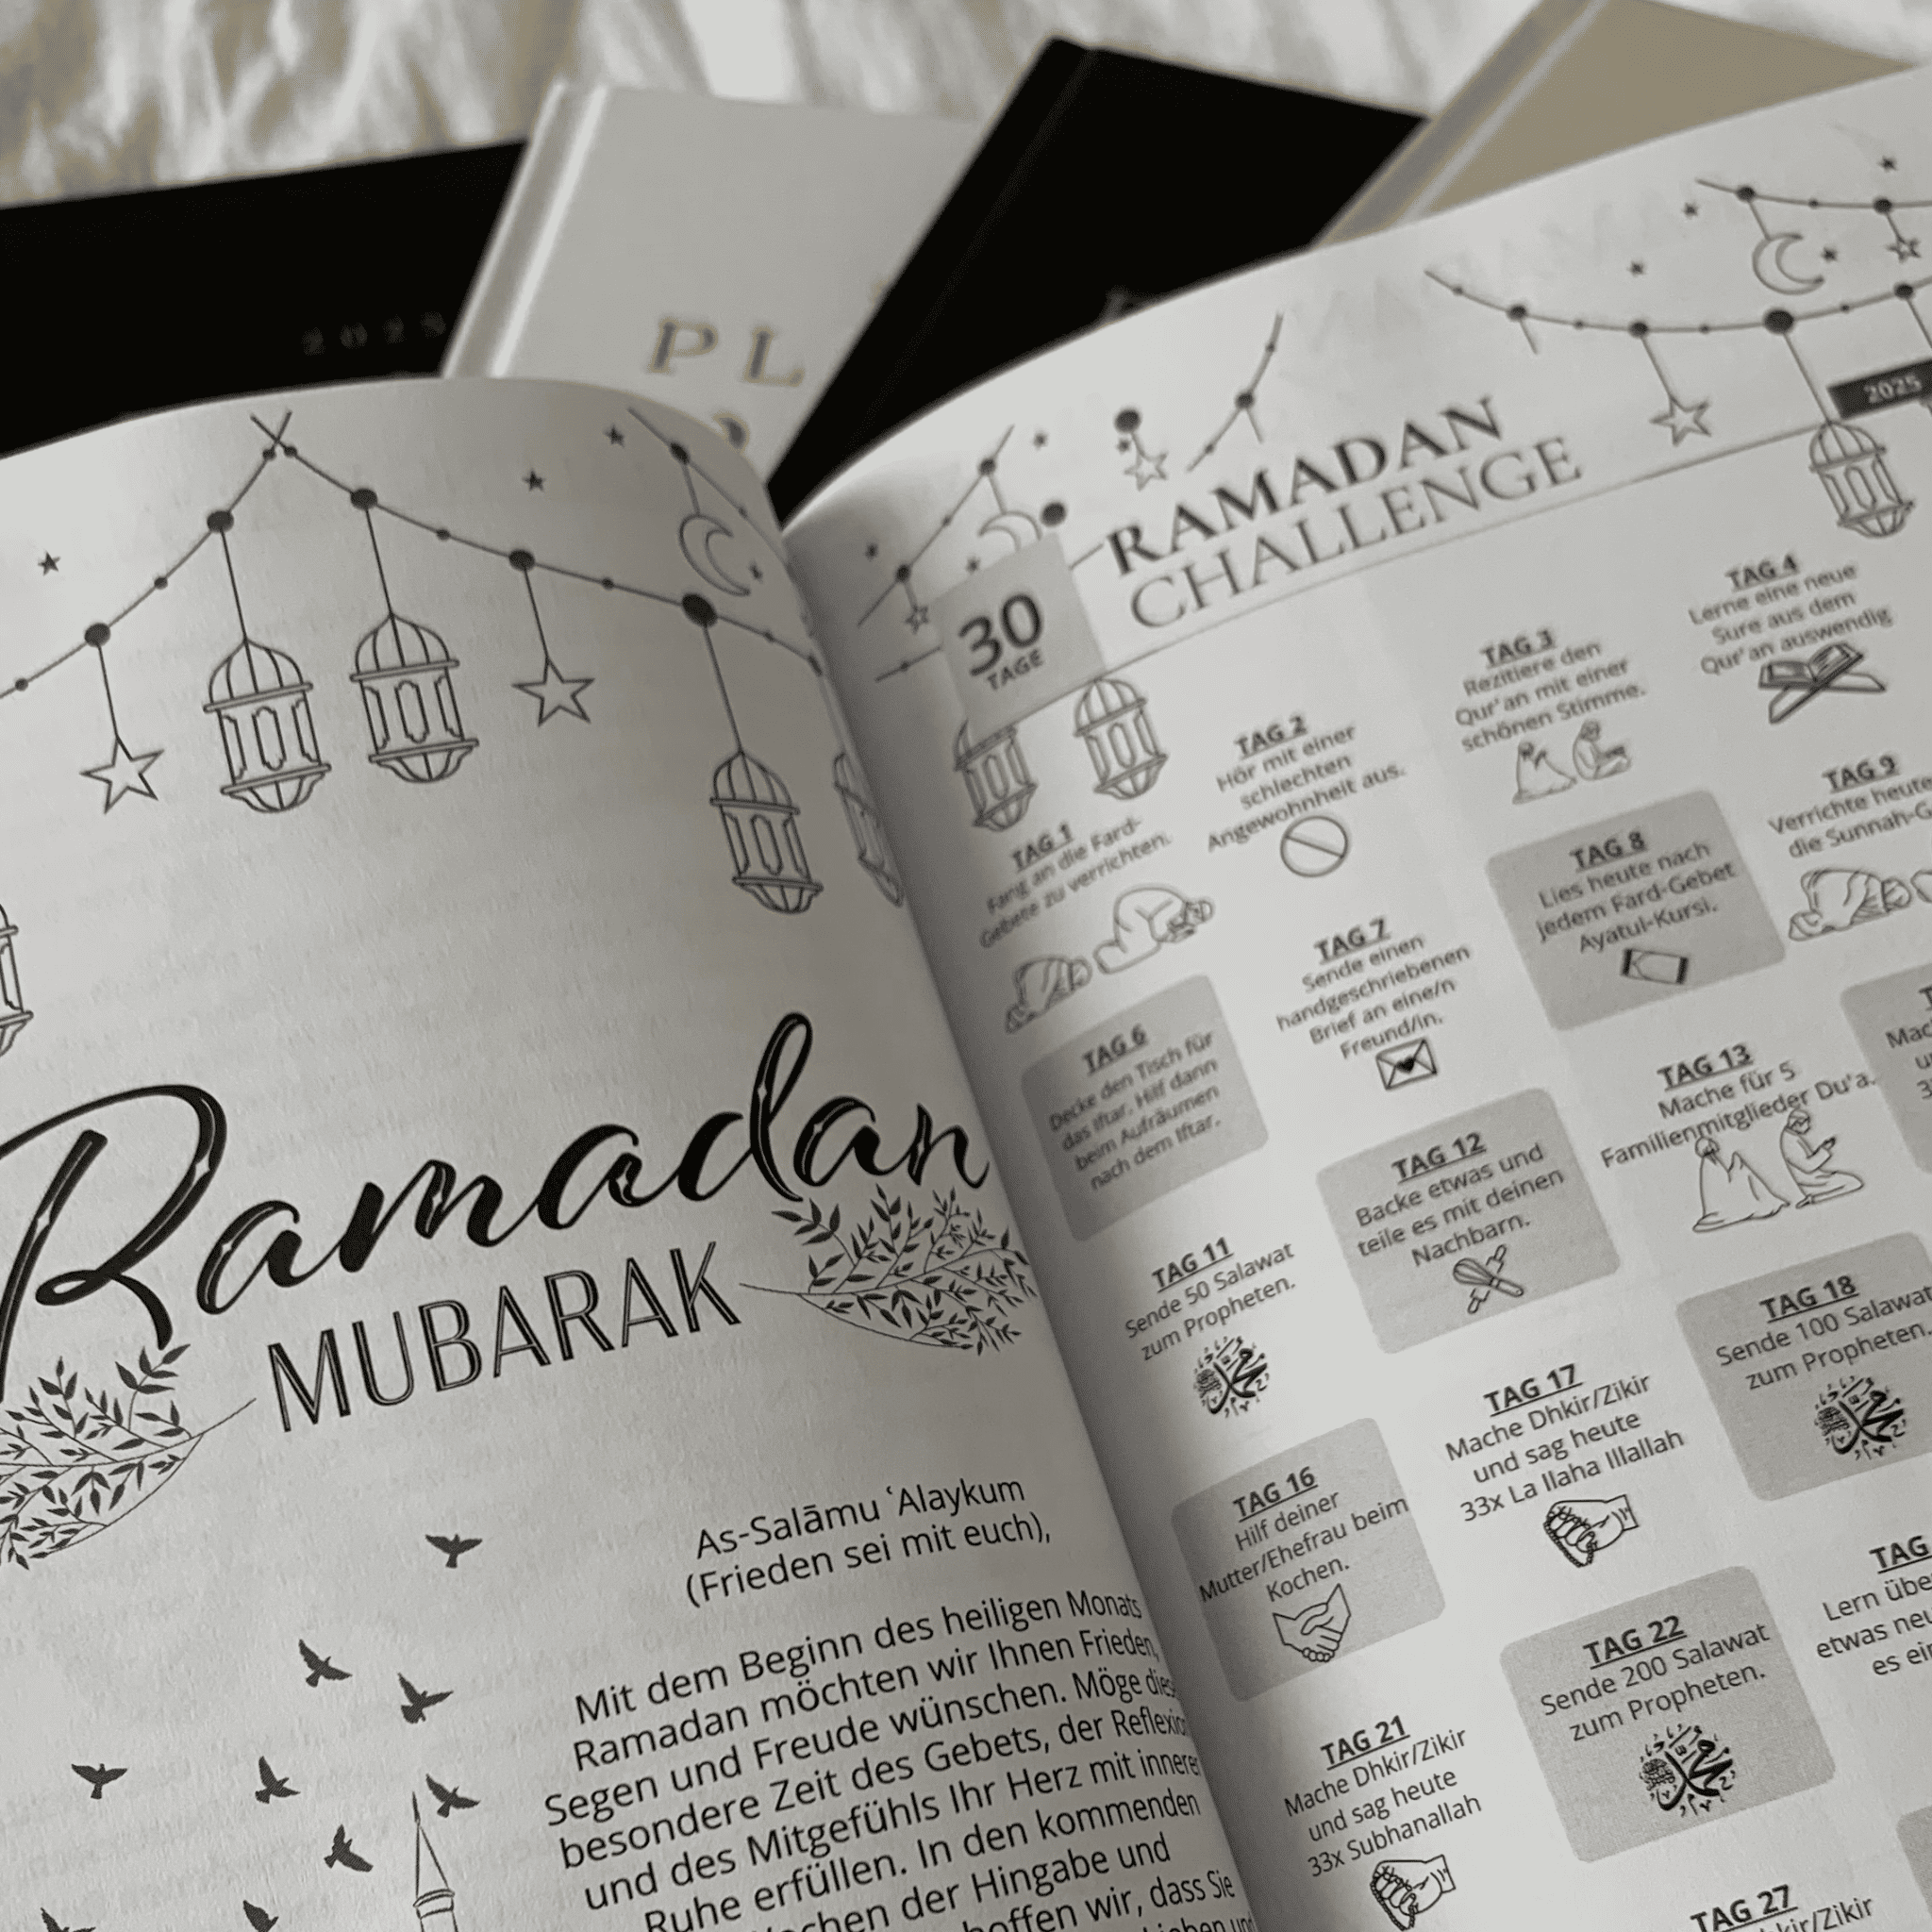 2025
PL
Ramadan
MUBARAK
As-Salāmu ʻAlaykum
(Frieden sei mit euch),
Mit dem Beginn des heiligen Monats
Ramadan möchten wir Ihnen Frieden,
Segen und Freude wünschen. Möge
besondere Zeit des Gebets, der
und des Mitgefühls Ihr Herz mit innerer
Ruhe erfüllen. In den kommenden
der Hingabe und
hoffen wir, dass Sie
2025
RAMADAN
CHALLENGE
30
TAGE
TAG 1
Fang an die Fard-
Gebete zu verrichten.
TAG 2
Hör mit einer
schlechten
Angewohnheit aus.
TAG 3
Rezitiere den
Qur'an mit einer
schönen Stimme.
TAG 4
Lerne eine neue
Sure aus dem
Qur'an auswendig
TAG 6
Decke den Tisch für
das Iftar. Hilf dann
beim Aufräumen
nach dem Iftar.
TAG 7
Sende einen
handgeschriebenen
Brief an eine/n
Freund/in.
TAG 8
Lies heute nach
jedem Fard-Gebet
Ayatul-Kursi.
TAG 9
Verrichte heute
die
TAG 11
Sende 50 Salawat
zum Propheten.
TAG 12
Backe etwas und
teile es mit deinen
Nachbarn.
TAG 13
Mache für 5
Familienmitglieder Du'a.
TAG 16
Hilf deiner
Mutter/Ehefrau beim
Kochen.
TAG 17
Mache Dhkir/Zikir
und sag heute
33x La Ilaha Illallah
TAG 18
Sende 100 Salawat
zum Propheten.
TAG 21
Mache Dhkir/Zikir
und sag heute
33x Subhanallah
TAG 22
Sende 200 Salawat
zum Propheten.
TAG
Lern
etwas
es
TAG 27